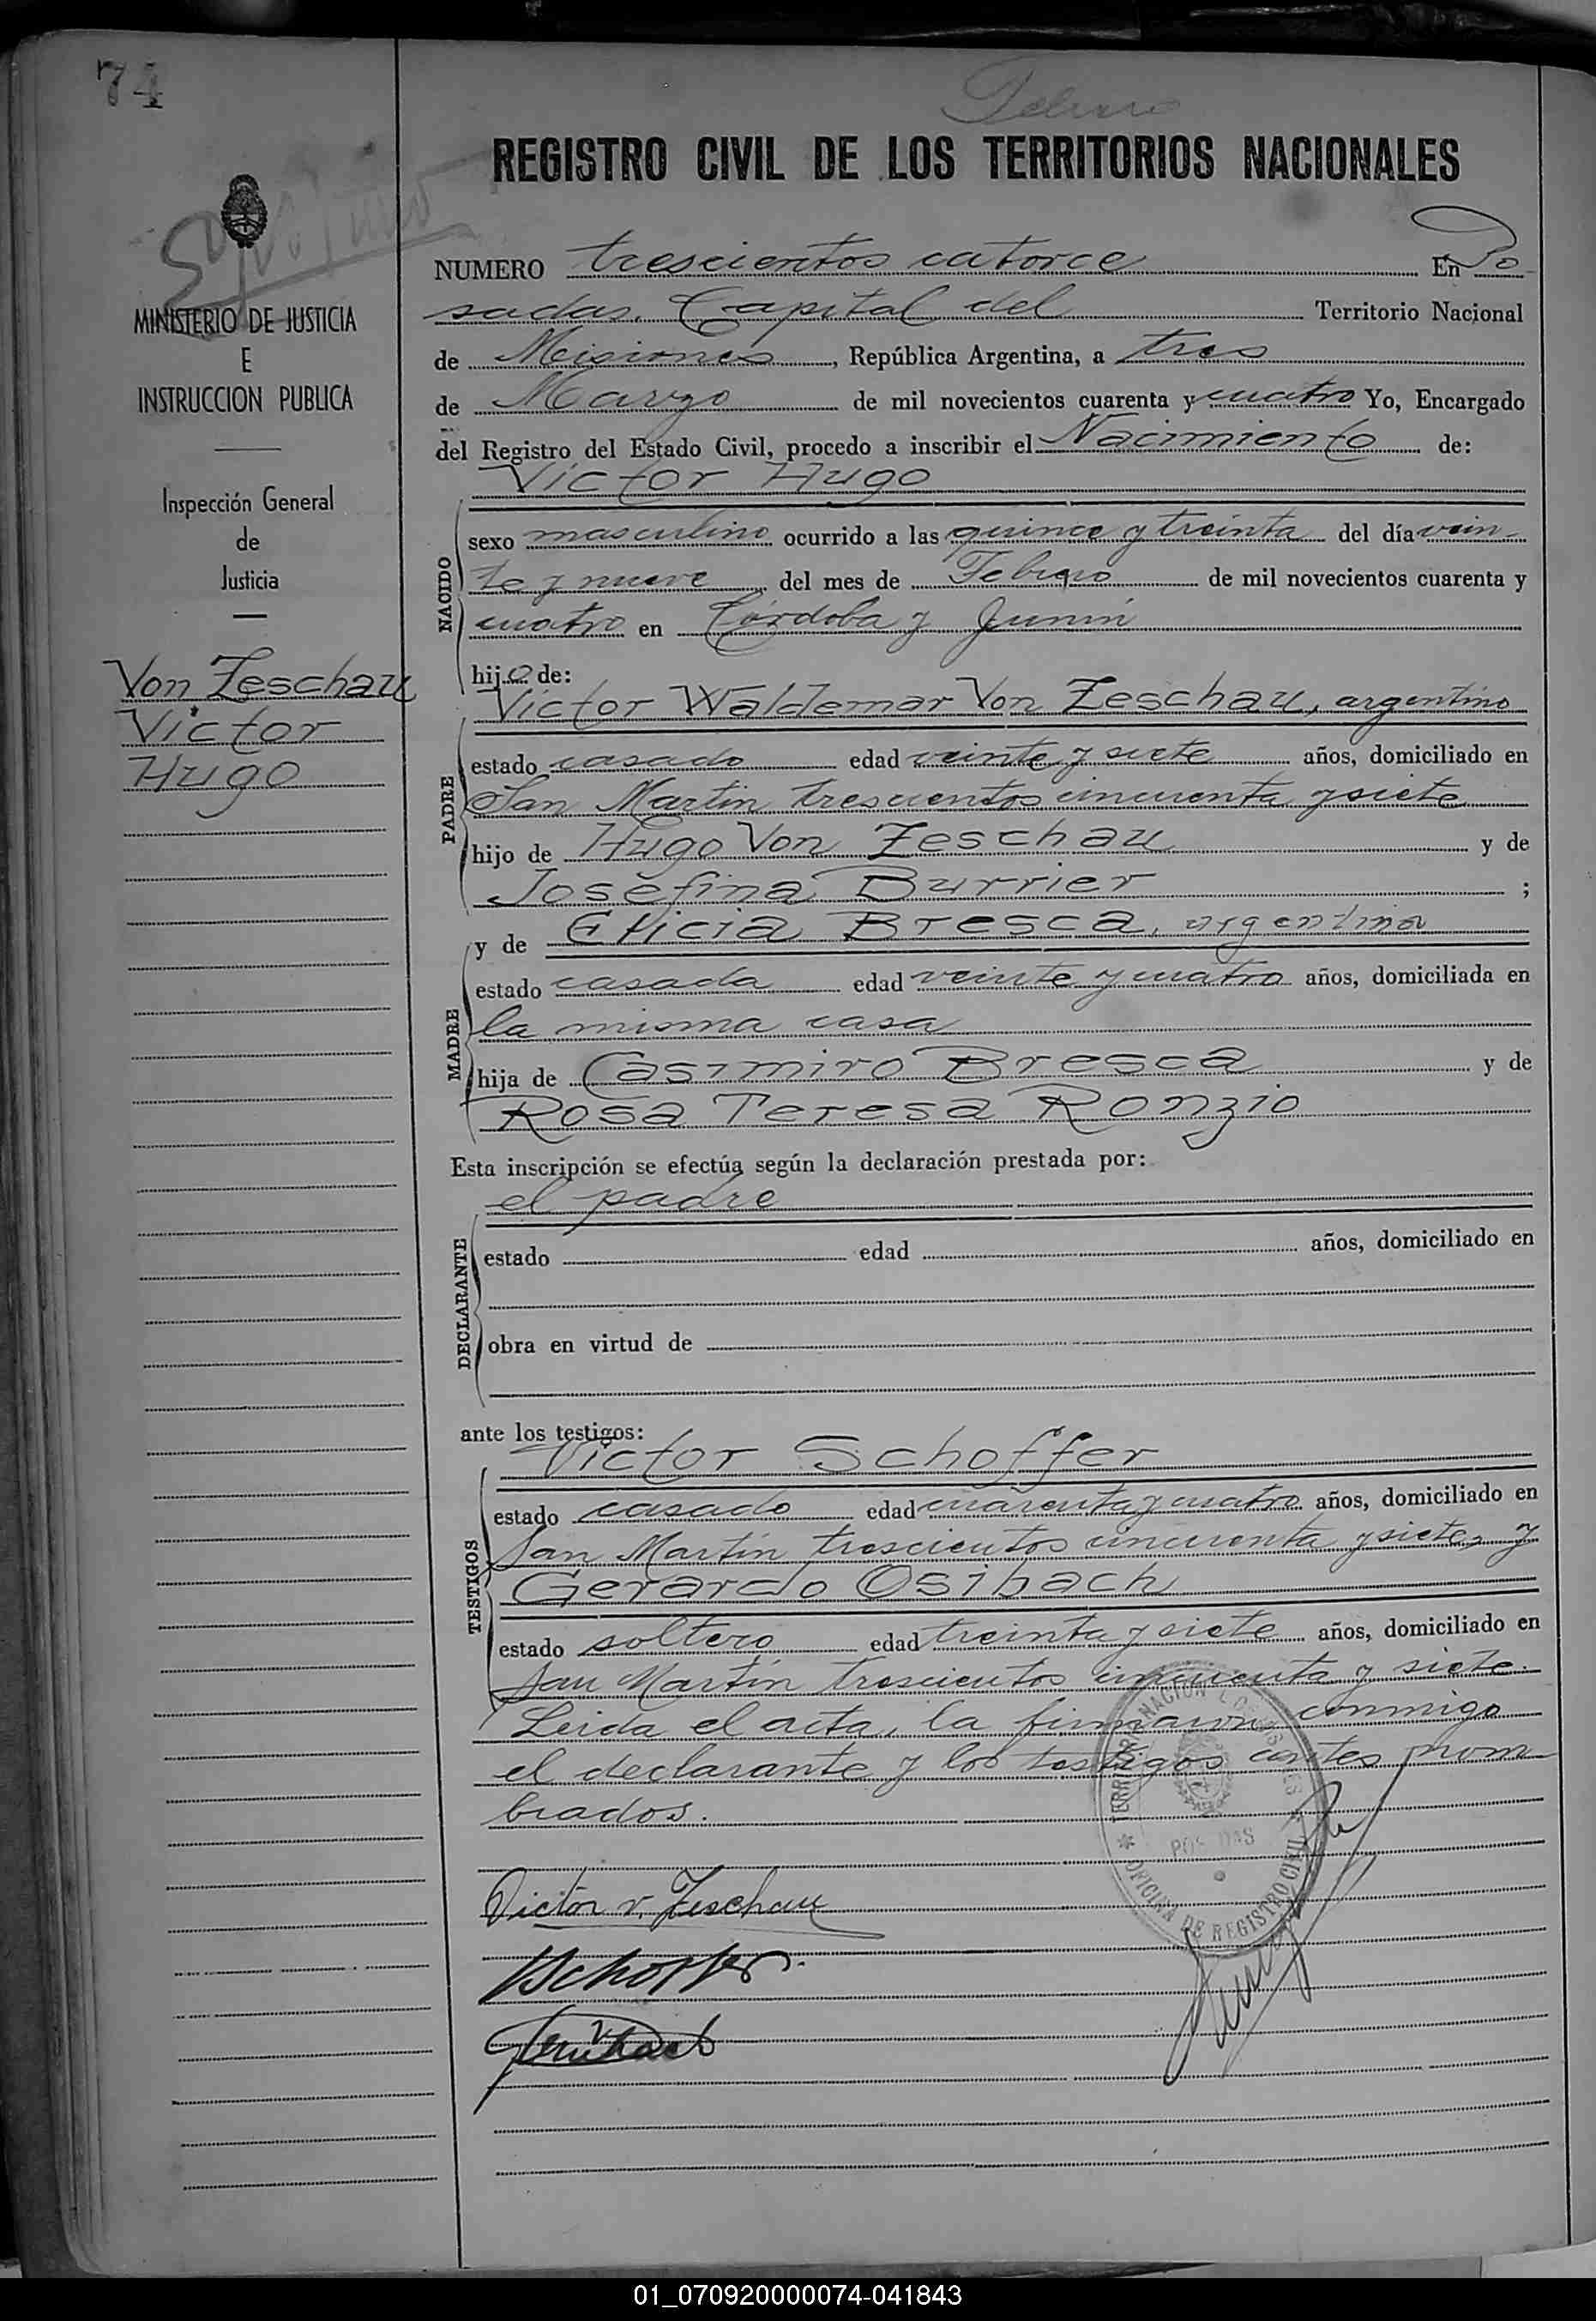 74
Febrero
REGISTRO CIVIL DE LOS TERRITORIOS NACIONALES
MINISTERIO DE JUSTICIA
E
INSTRUCCION PUBLICA
Inspección General
de
Justicia
Von Zeschau
Victor
Hugo
NUMERO trescientos catorce En Po
sadas, Capital del Territorio Nacional
de Misiones, República Argentina, a tres
de Marzo de mil novecientos cuarenta y cuatro Yo, Encargado
del Registro del Estado Civil, procedo a inscribir el Nacimiento de:
Victor Hugo
NACIDO
sexo masculino ocurrido a las quince y treinta del día vein-
te y nueve del mes de Febrero de mil novecientos cuarenta y
cuatro en Córdoba y Junín
hijo de:
Victor Waldemar Von Zeschau, argentino
PADRE
estado casado edad veinte y siete años, domiciliado en
San Martín trescientos cincuenta y siete
hijo de Hugo Von Zeschau y de
Josefina Burrier ;
y de Elicia Bresca, argentina
MADRE
estado casada edad veinte y cuatro años, domiciliada en
la misma casa
hija de Casimiro Bresca y de
Rosa Teresa Ronzio
Esta inscripción se efectúa según la declaración prestada por:
el padre
DECLARANTE
estado edad años, domiciliado en
obra en virtud de
ante los testigos:
Victor Schoffer
TESTIGOS
estado casado edad cuarenta y cuatro años, domiciliado en
San Martín trescientos cincuenta y siete, y
Gerardo Osibach
estado soltero edad treinta y siete años, domiciliado en
San Martín trescientos cincuenta y siete.
Leida el acta, la firmaron conmigo
el declarante y los testigos antes nom
brados.
POSADAS
OFICINA DE REGISTRO CIVIL
Victor v. Zeschau
VSchoffer.
01_070920000074-041843